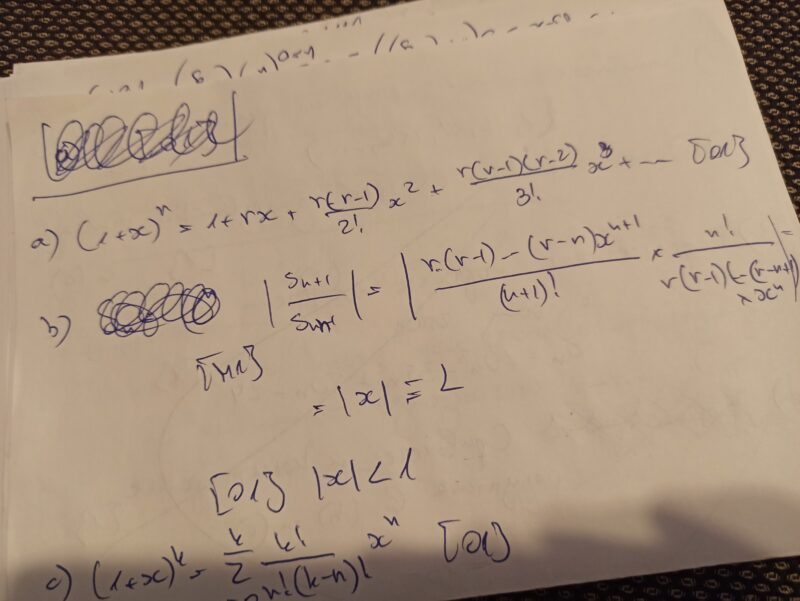 a) (1+x)^r = 1 + rx + r(r-1)/2! x² + r(r-1)(r-2)/3! x³ + ... [A1]
b) |S_{n+1}/S_n| = |r(r-1)-(r-n)x^{n+1}/(n+1)! × n!/r(r-1)(-(r-n+1) × x^n| =
[M1]
= |x| = L
[A1] |x| < 1
c) (1+x)^k = Σ k!/n!(k-n)! x^n [A1]